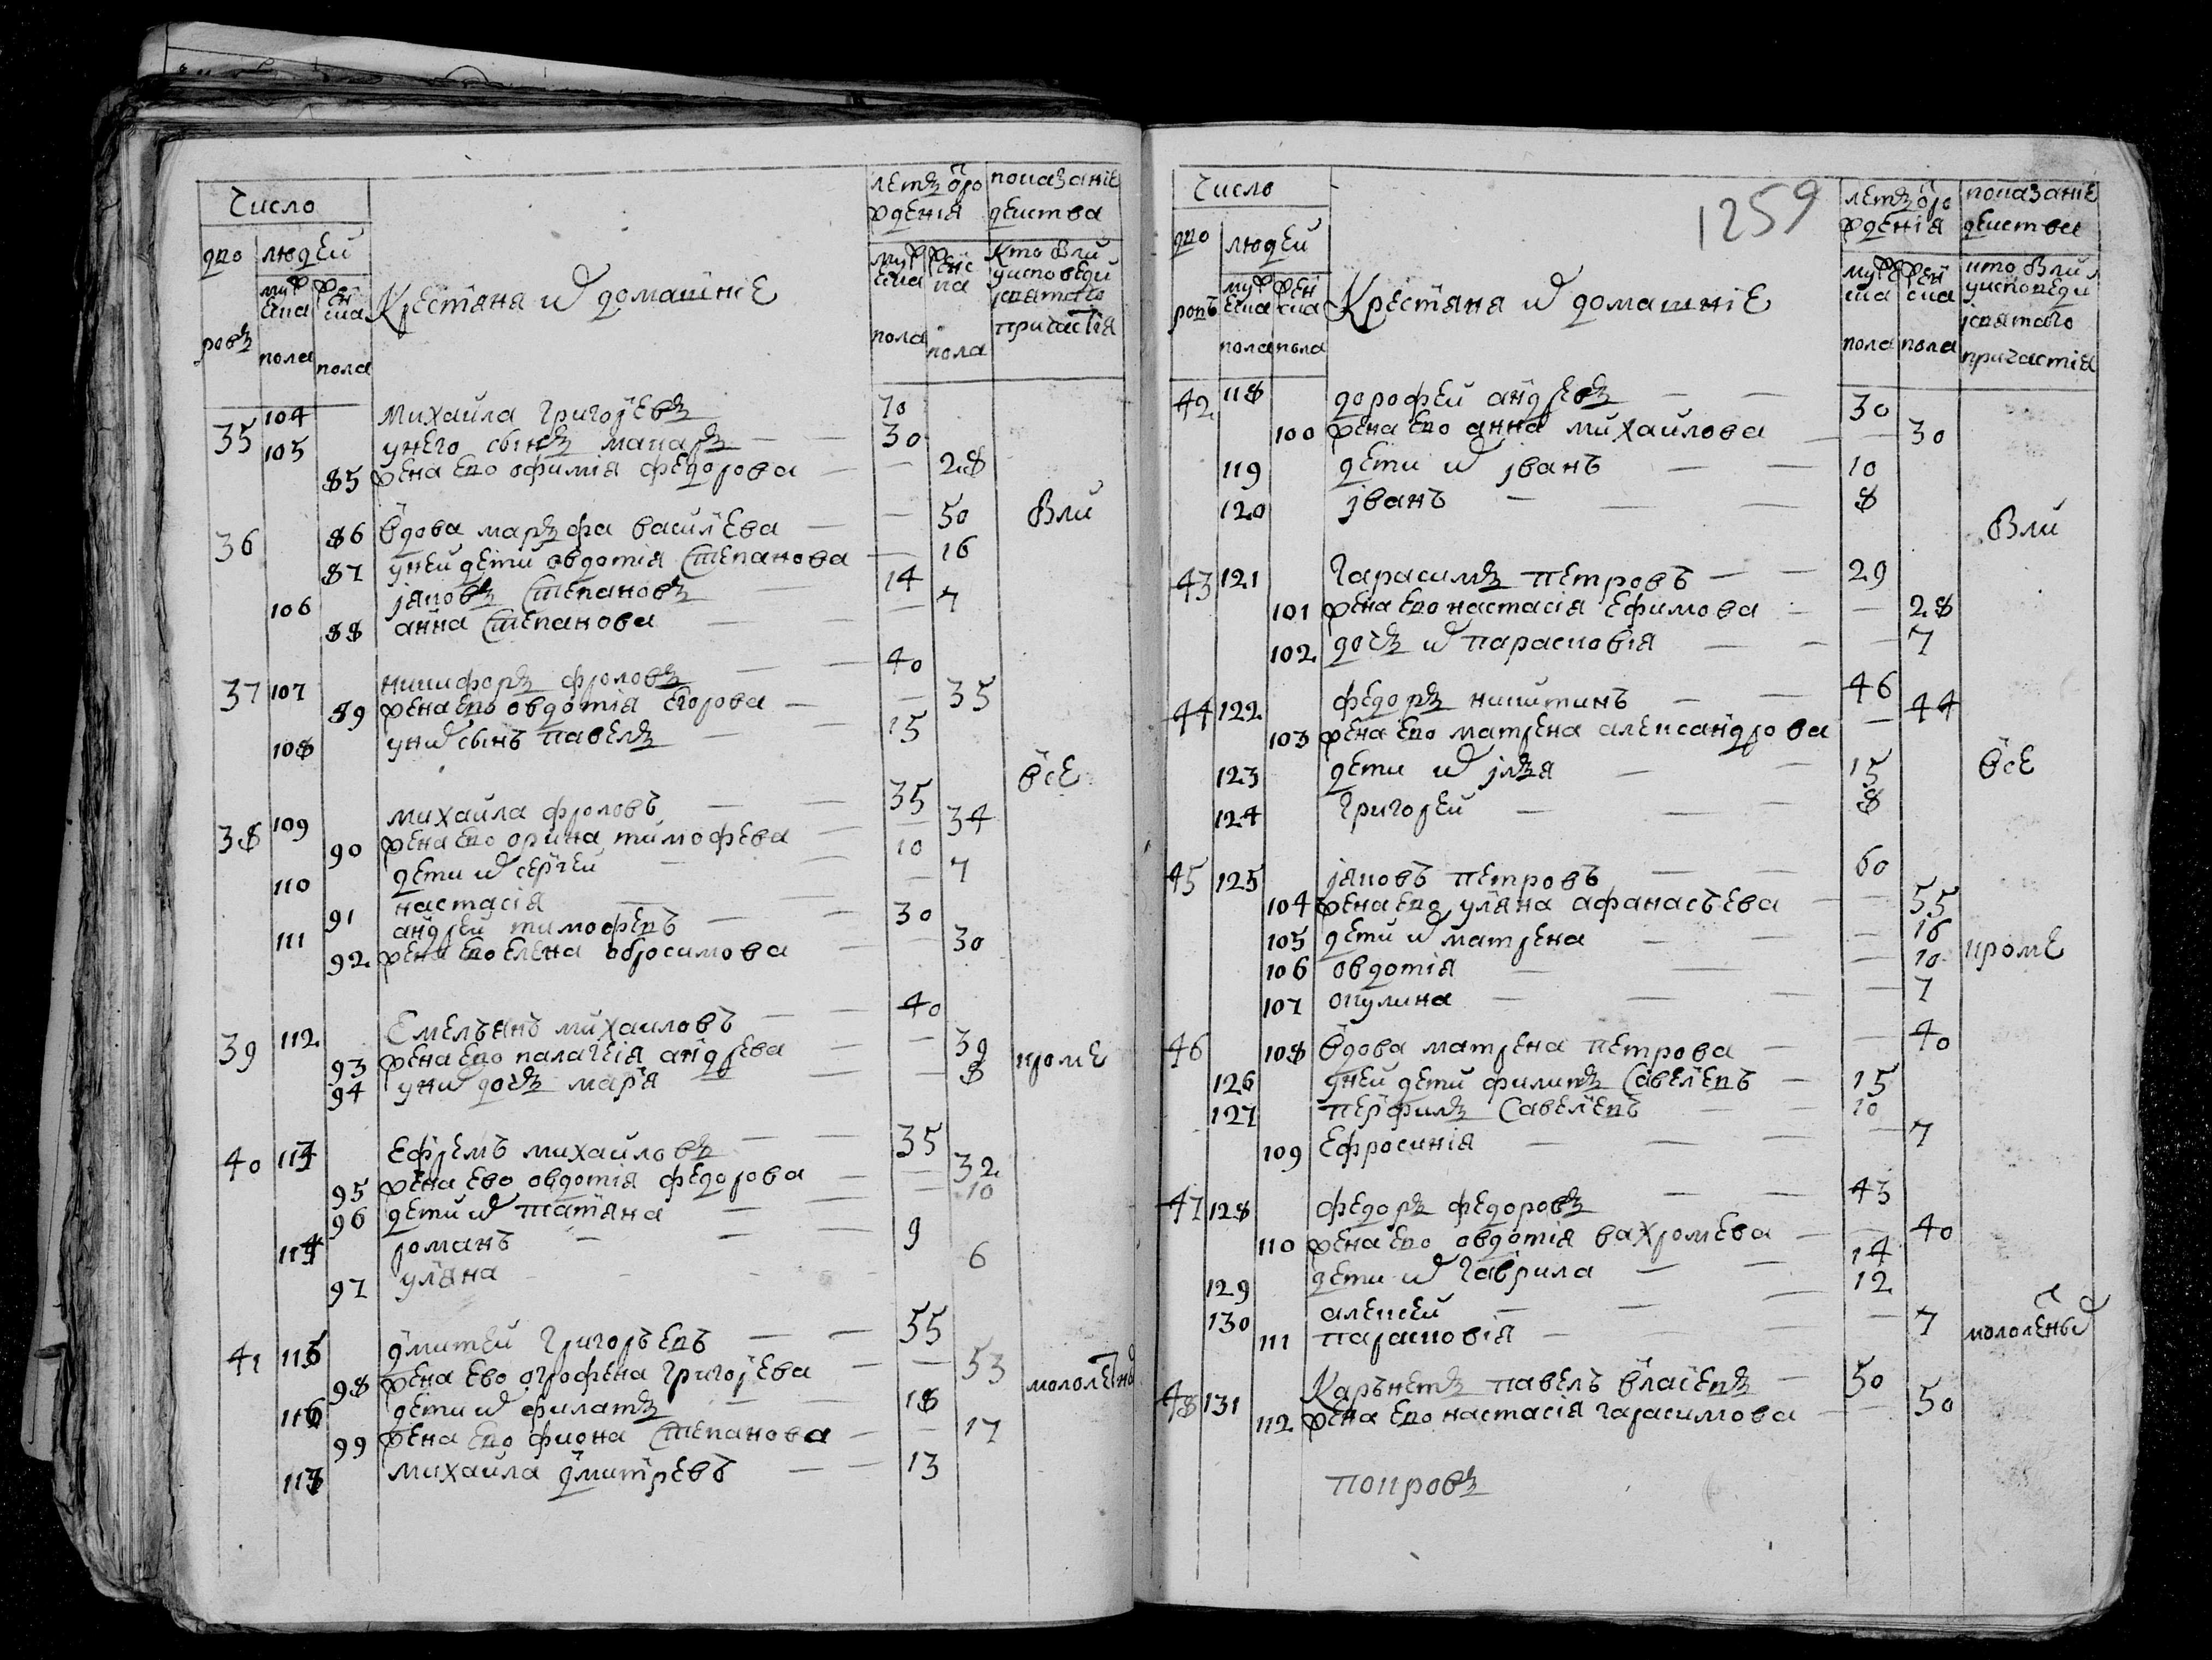 Число
лѣтъ ѿ ро
показаніе
жденія
деиства
дво
людеи
муж
жен
Крестяня и домашніе
муж
женс
Кто были
еска
ска
ска
ка
у исповеди
и святаго
ровъ
пола
пола
пола
пола
причастїя
35 104 михаила григорїевъ 70
105 у него сынъ макаръ — — 30
85 жена ево офимїя федорова — — 28
36 86 вдова маръфа василїева — — 50 были
87 у неи дети овдотїя степанова — 16
106 іяковъ степановъ — 14
88 анна степанова — — — 7
37 107 никифоръ фроловъ — — 40
89 жена ево овдотїя егорова — — 35
108 у них сынъ павелъ — — 15
все
38 109 михаила фроловъ — — 35
90 жена ево орина тимофева — — 34
110 дети их сергеи — — 10
91 настасїя — — 7
111 андреи тимофевъ — — 30
92 жена ево елена обросимова — — 30
39 112 Емелъянъ михаиловъ — — 40
93 жена ево палагеїя андрева — — 39 кроме
94 у них дочъ марїя — — 8
40 113 ефремъ михаиловъ — — 35
95 жена ево овдотїя федорова — — 32
96 дети их татїяна — — 10
114 романъ — — 9
97 улїяна 6
41 115 дмитреи григоръевъ — — 55
98 жена ево огрофена григорїева — — 53 мололетных
116 дети их филатъ — — 18
99 жена ево фиона степанова — — 17
117 михаила дмитрїевъ — — 13
1259
Число
лѣтъ ѿ ро
показаніе
жденія
деиства
дво
людеи
муж
жен
Крестяня и домашніе
муже
жен
кто были
еска
ска
ска
ска
у исповеди
и святаго
ровъ
пола
пола
пола
пола
причастїя
42 118 дорофеи андревъ — — 30
100 жена ево анна михаилова — — 30
119 дети их іванъ — — 10
120 іванъ — — 8
были
43 121 гарасимъ петровъ — — 29
101 жена ево настасїя ефимова — — 28
102 дочъ их парасковїя — — — 7
44 122 федоръ никитинъ — — 46
103 жена ево матрена александрова — 44
123 дети их ілъя — — 15 все
124 григореи — — 8
45 125 іяковъ петровъ — — 60
104 жена ево улїяна афанасъева — — 55
105 дети их матрена — — 16 кроме
106 овдотїя — — — 10
107 окулина — — — 7
46 108 вдова матрена петрова — — 40
126 у неи дети филипъ савелїевъ — 15
127 перфилъ савелїевъ — — 10
109 ефросинїя — — — 7
47 128 федоръ федоровъ — — 43
110 жена ево овдотїя вахромева — — 40
129 дети их гаврила — — 14
130 алексеи — — — 12
111 парасковїя — — — 7 мололетных
48 131 Карънетъ павелъ власїевъ — 50
112 жена ево настасїя гарасимова — — 50
покровъ